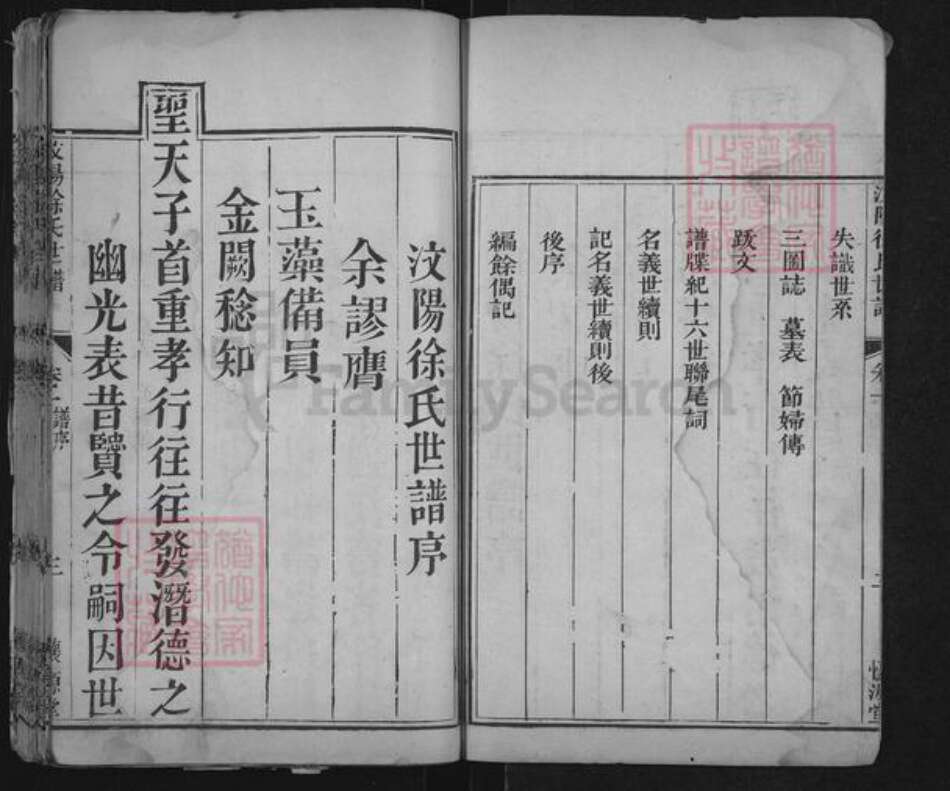 失識世系
三圖誌 墓表 節婦傳
跋文
譜牒紀十六世聯尾詞
名義世續則
記名義世續則後
後序
編餘偶記
汶陽徐氏世譜序
余謬膺
玉藻備員
金闕稔知
聖天子首重孝行往往發潛德之
幽光表昔賢之令嗣因世
汶陽徐氏世譜 卷一 譜序 三
FamilySearch